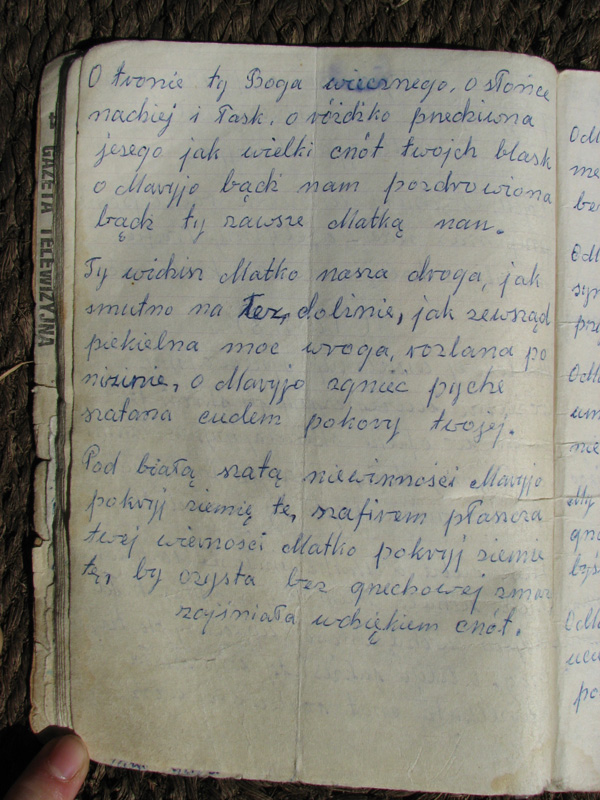 O tronie ty Boga wiecznego, o słońce
nadziej i łask, o różdżko przedziwna
jesego jak wielki cnót twojch blask
o Maryjo bądź nam pozdrowiona
bądź ty zawsze Matką nam.
Ty widzisz Matko nasza droga, jak
smutno na łez, dolinie, jak zewsząd
piekielna moc wroga, rozlana po
nizinie, o Maryjo zgnieć pychę
szatana cudem pokory twojej.
Pod białą szatą niewinności Maryjo
pokryj ziemię te, szafirem płaszcza
twej wierności Matko pokryj ziemie
te, by czysta bez grzechowej zmaz
zajśniała wdziękiem cnót.
GAZETA TELEWIZYJNA